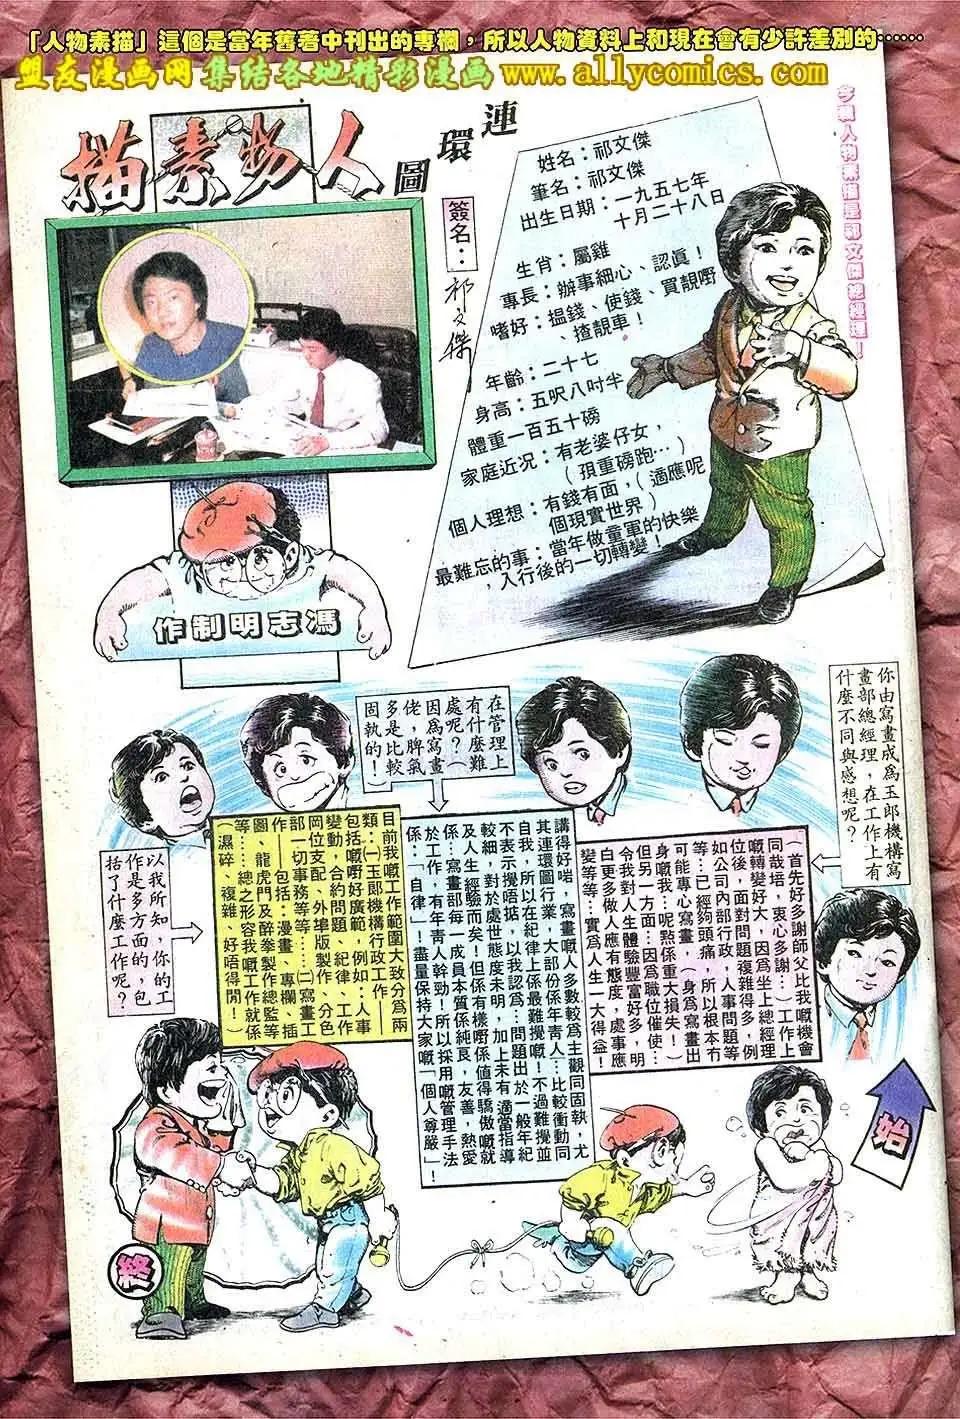 「人物素描」這個是當年舊著中刊出的專欄，所以人物資料上和現在會有少許差別的⋯⋯
盟友漫画网 集结各地精彩漫画 www.allycomics.com
人物素描
連環圖
今輯人物素描是祁文傑總經理！
簽名：
祁文傑
姓名：祁文傑
筆名：祁文傑
出生日期：一九五七年
十月二十八日
生肖：屬雞
專長：辦事細心、認真！
嗜好：搵錢、使錢、買靚嘢
、揸靚車！
年齡：二十七
身高：五呎八吋半
體重一百五十磅
家庭近況：有老婆仔女，
（孭重磅跑…）
個人理想：有錢有面，（適應呢
個現實世界）
最難忘的事：當年做童軍的快樂
，入行後的一切轉變！
馮志明制作
你由寫畫成為玉郎機構寫
畫部總經理，在工作上有
什麼不同與感想呢？
（首先好多謝師父比我嘅機會
同哉培，衷心多謝…）工作上
嘅轉變好大，因為坐上總經理
位後，面對問題複雜得多，例
如公司內部行政；人事問題等
等…已經夠頭痛，所以根本冇
可能專心寫畫，（身為寫畫出
身嘅我…呢點係重大損失！）
但另一方面…因為職位催使…
令我對人生體驗豐富好多，明
白更多做人應有態度，處事應
變等等…實為人生一大得益！
在管理上
有什麼難
處呢？（
因為寫畫
佬，脾氣
多是比較
固執的！）
講得好啱，寫畫嘅人多數較為主觀同固執，尤
其連環圖行業，大部份係年青人…比較衝動同
自我，所以在紀律上係最難攪嘅！不過難攪並
不表示攪唔掂，以我認為…問題出於一般年紀
較細，對於處世態度未明，加上未有適當指導
及人生經驗而矣！但係有樣嘢係值得驕傲嘅就
係…寫畫部每一成員本質係純良，友善，熱愛
於工作，有年青人幹勁！所以採用嘅管理手法
係「自律」！盡量保持大家嘅「個人尊嚴」！
以我所知，你的工
作是多方面的，包
括了什麼工作呢？
目前我嘅工作範圍大致分為兩
類：㈠玉郎機構行政工作——
包括嘅嘢好廣範，例如：人事
變動，合約問題、紀律、工作
岡位支配、外埠版製作、分色
部一切事務等等……㈡寫畫工
作——包括：漫畫、專欄、插
圖、龍虎門及醉拳製作總監等
等……總之形容我嘅工作就係
（濕碎、複雜、好唔得閒！）
始
終